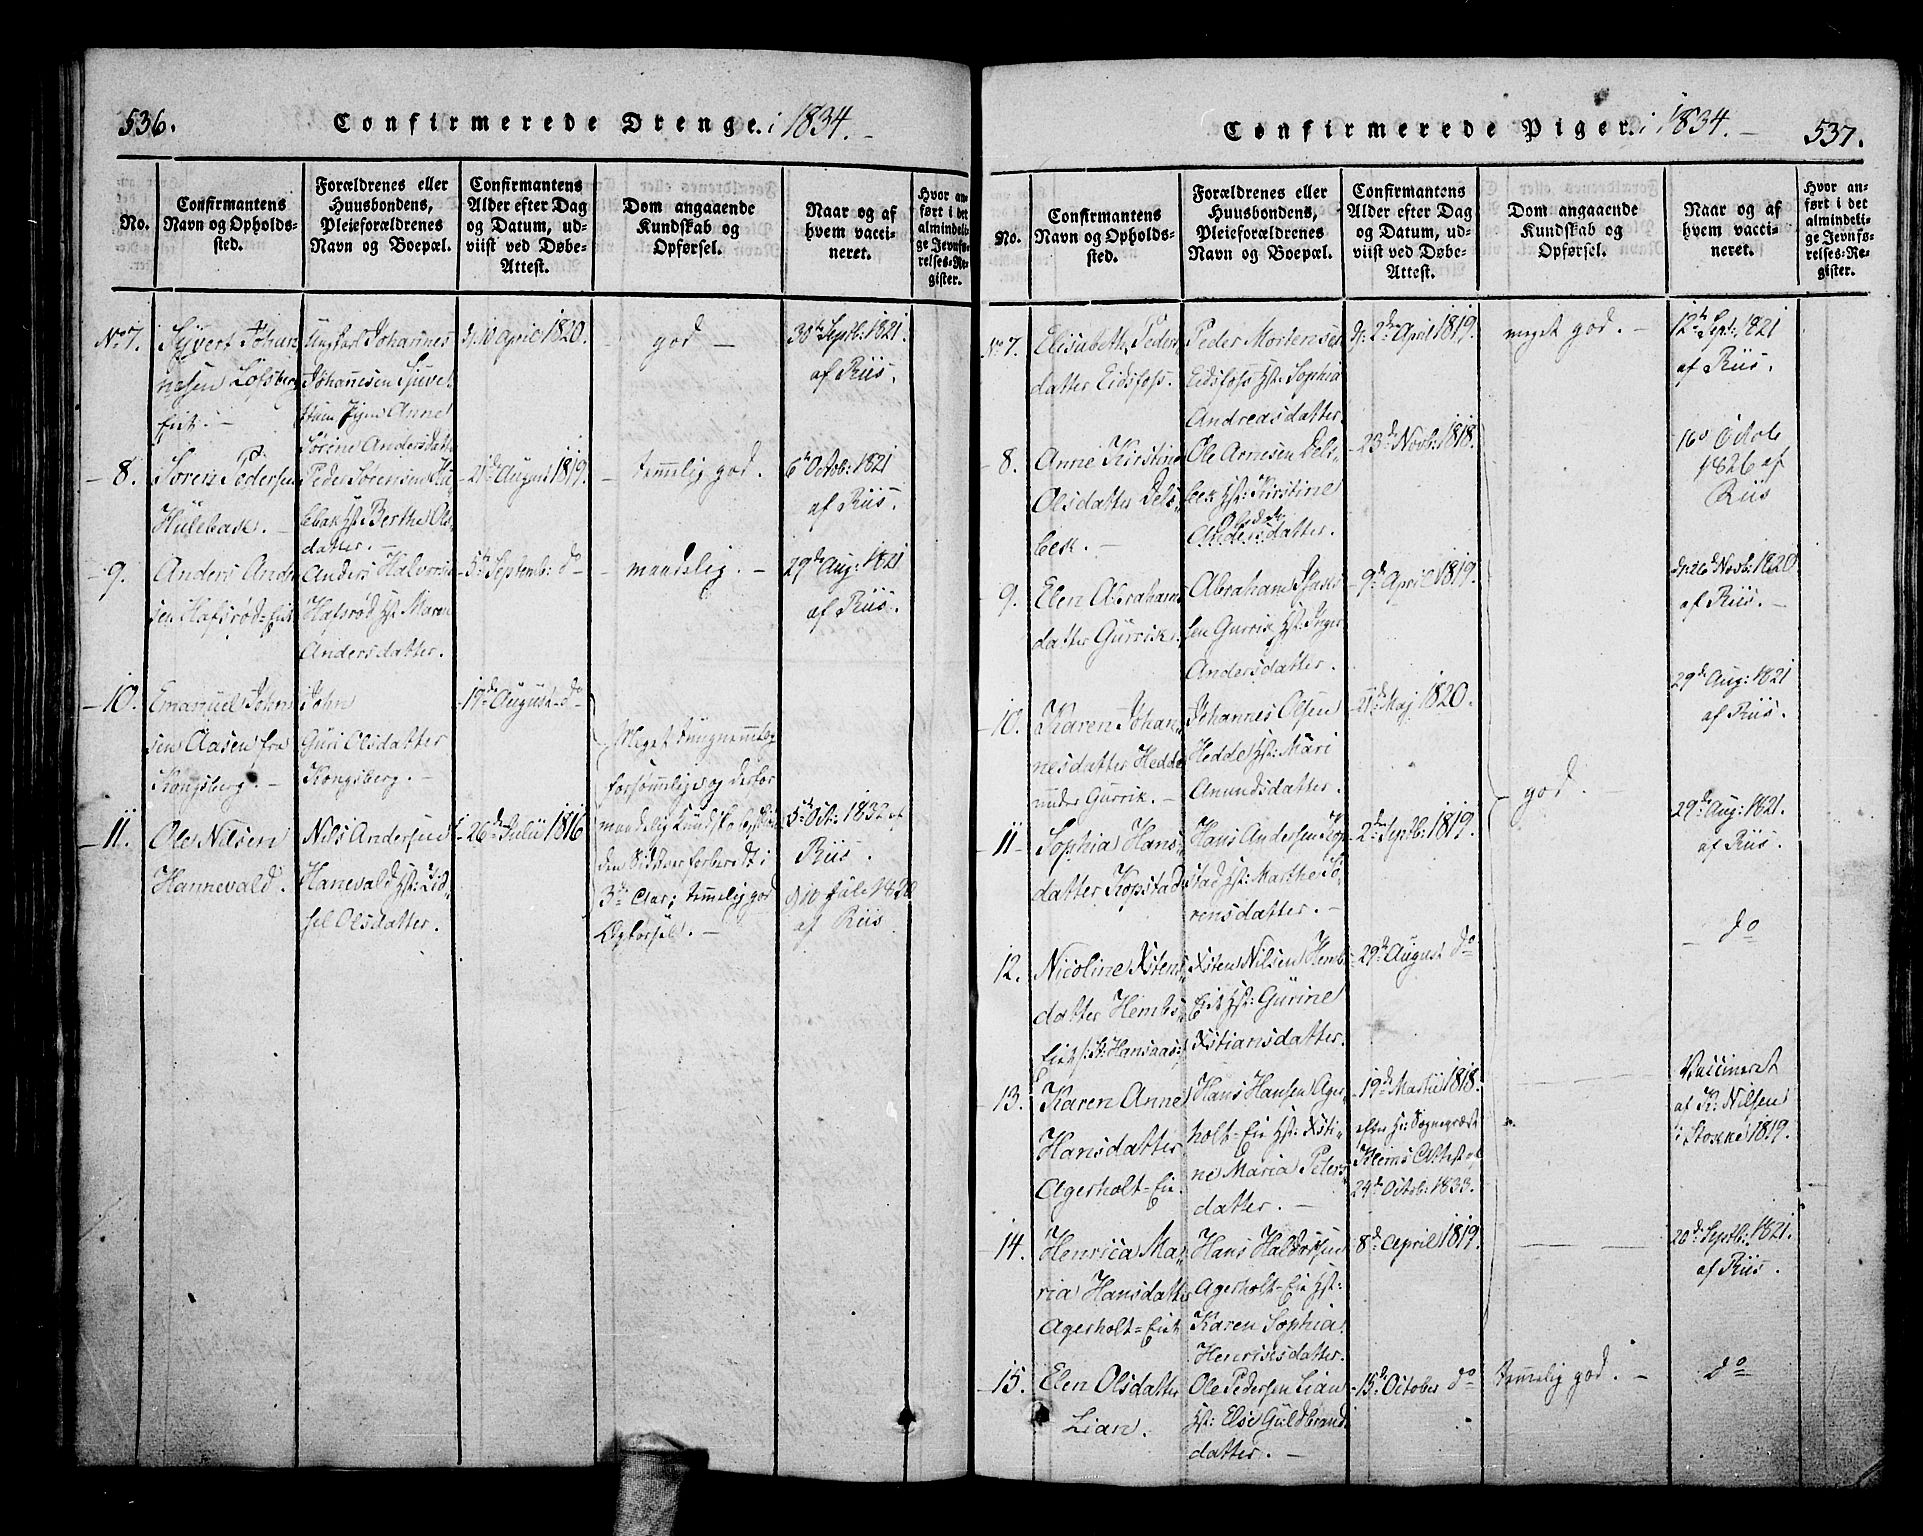 536.
Confirmerede Drenge. i 1834.
No.
Confirmantens Navn og Opholdssted.
Forældrenes eller Huusbondens, Pleieforældrenes Navn og Boepæl.
Confirmantens Alder efter Dag og Datum, udviist ved Døbe-Attest.
Dom angaaende Kundskab og Opførsel.
Naar og af hvem vaccineret.
Hvor anført i det almindelige Jevnførelses-Register.
No 7.
Syvert Johan
nesen Lofsberg
Eiet. -
Johannes
Johannesen
Anne
Sørine Andersdatt
10 April 1820.
god -
30te Septb: 1821.
af Riis.
8.
Søren Pedersen
Hulebak. -
Peder Sørensen Hu
lebak Hst: Berthe Ols
datter. -
21de August 1819.
temmelig god.
6te Octob: 1821
af Riis.
9.
Anders Ander
sen Hafsrød-Eiet
Anders Halvors
Hafsrød Hst: Maren
Andersdatter.
5te Septemb: do
maadelig. -
29de Aug: 1821
af Riis.
10.
Emanuel Johns
sen Aasen fra
Kongsberg. -
John
Guri Olsdatter
Kongsberg. -
19de August do
Meget tungnemmelig
forsømmelig og derfor
maadelig Kundskab
3de Aar; temmelig god
Opførsel. -
11.
Ole Nilsen
Hannevald.
Nils Andersen
Hanevald Hst: Sid
sel Olsdatter.
26de Julii 1816
5te Oct: 1832 af
Riis.
af Riis
Confirmerede Piger. i 1834. -
537.
No.
Confirmantens Navn og Opholdssted.
Forældrenes eller Huusbondens, Pleieforældrenes Navn og Boepæl.
Confirmantens Alder efter Dag og Datum, udviist ved Døbe-Attest.
Dom angaaende Kundskab og Opførsel.
Naar og af hvem vaccineret.
Hvor anført i det almindelige Jevnførelses-Register.
No 7.
Elisabeth Peders
datter Eidsfoss.
Peder Mortensen
Eidsfoss Hst: Sophia
Andreasdatter.
2den April 1819.
meget god. -
12te Sept: 1821
af Riis.
8.
Anne Kirstine
Olsdatter Dels
bek. -
Ole Arnesen Dels
bek Hst: Kirstine
Andersdatter.
23de Novb: 1818.
16 Octob
1826 af
Riis
9.
Elen Abrahams
datter Gurrik.
Abraham
sen Gurrik Hst: Inger
Andersdatter.
9de April 1819.
26de Novb: 1820.
af Riis. -
10.
Karen Johan
nesdatter Hedde
under Gurrik. -
Johannes Olsen
Hedde Hst: Mari
Amundsdatter.
21de Maj 1820.
god. -
29de Aug: 1821
af Riis.
11
Sophia Hans
datter Kopstad
Hans Andersen Kop
stad Hst: Marthe Sø
rensdatter. -
2den Septb: 1819.
29de Aug: 1821
af Riis.
12.
Nicoline Xstens
datter Hembs
Eiet /: St: Hansaas :/
Xsten Nilsen Hemb
Eiet Hst: Gurine
Xstiansdatter.
29de August do
- do
13.
Karen Anne
Hansdatter
Agerholt-Eie.
Hans Hansen Ager
holt-Eie Hst: Xsti
ne Maria Peters
datter. -
19de Martii 1818.
efter Hr: Sognepræst
Klems Attest af
29de Octob: 1833.
Vaccineret
af K: Nilsen
i Stokke 1819.
14.
Henrica Ma
ria Hansdatter
Agerholt-Eiet
Hans Halvorsen
Agerholt-Eie Hst:
Karen Sophia
Henricsdatter.
8de April 1819.
20de Septb: 1821.
af Riis.
15.
Elen Olsdatter
Lian.
Ole Pedersen Lian
Hst: Else Guldbrand
datter. -
15de October do
temmelig god. -
do